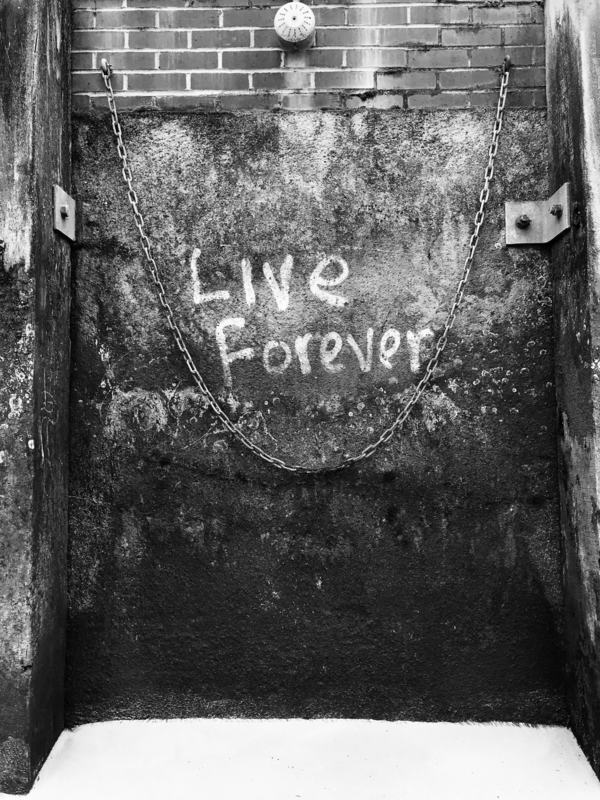 Live
Forever